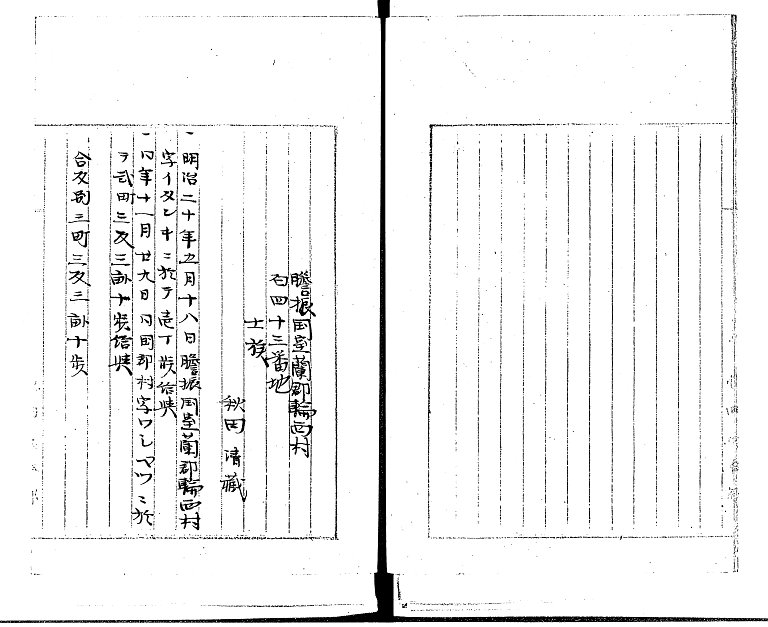 膽振国室蘭郡輪西村
百四十三番地
士族
秋田清藏
一 明治二十年五月十八日膽振国室蘭郡輪西村
字イタンキニ於テ壱丁歩給與
一 同年十一月廿九日同国郡村字ワシヤツニ於
テ弐町三反三畝十歩給與
合反別三町三反三畝十歩